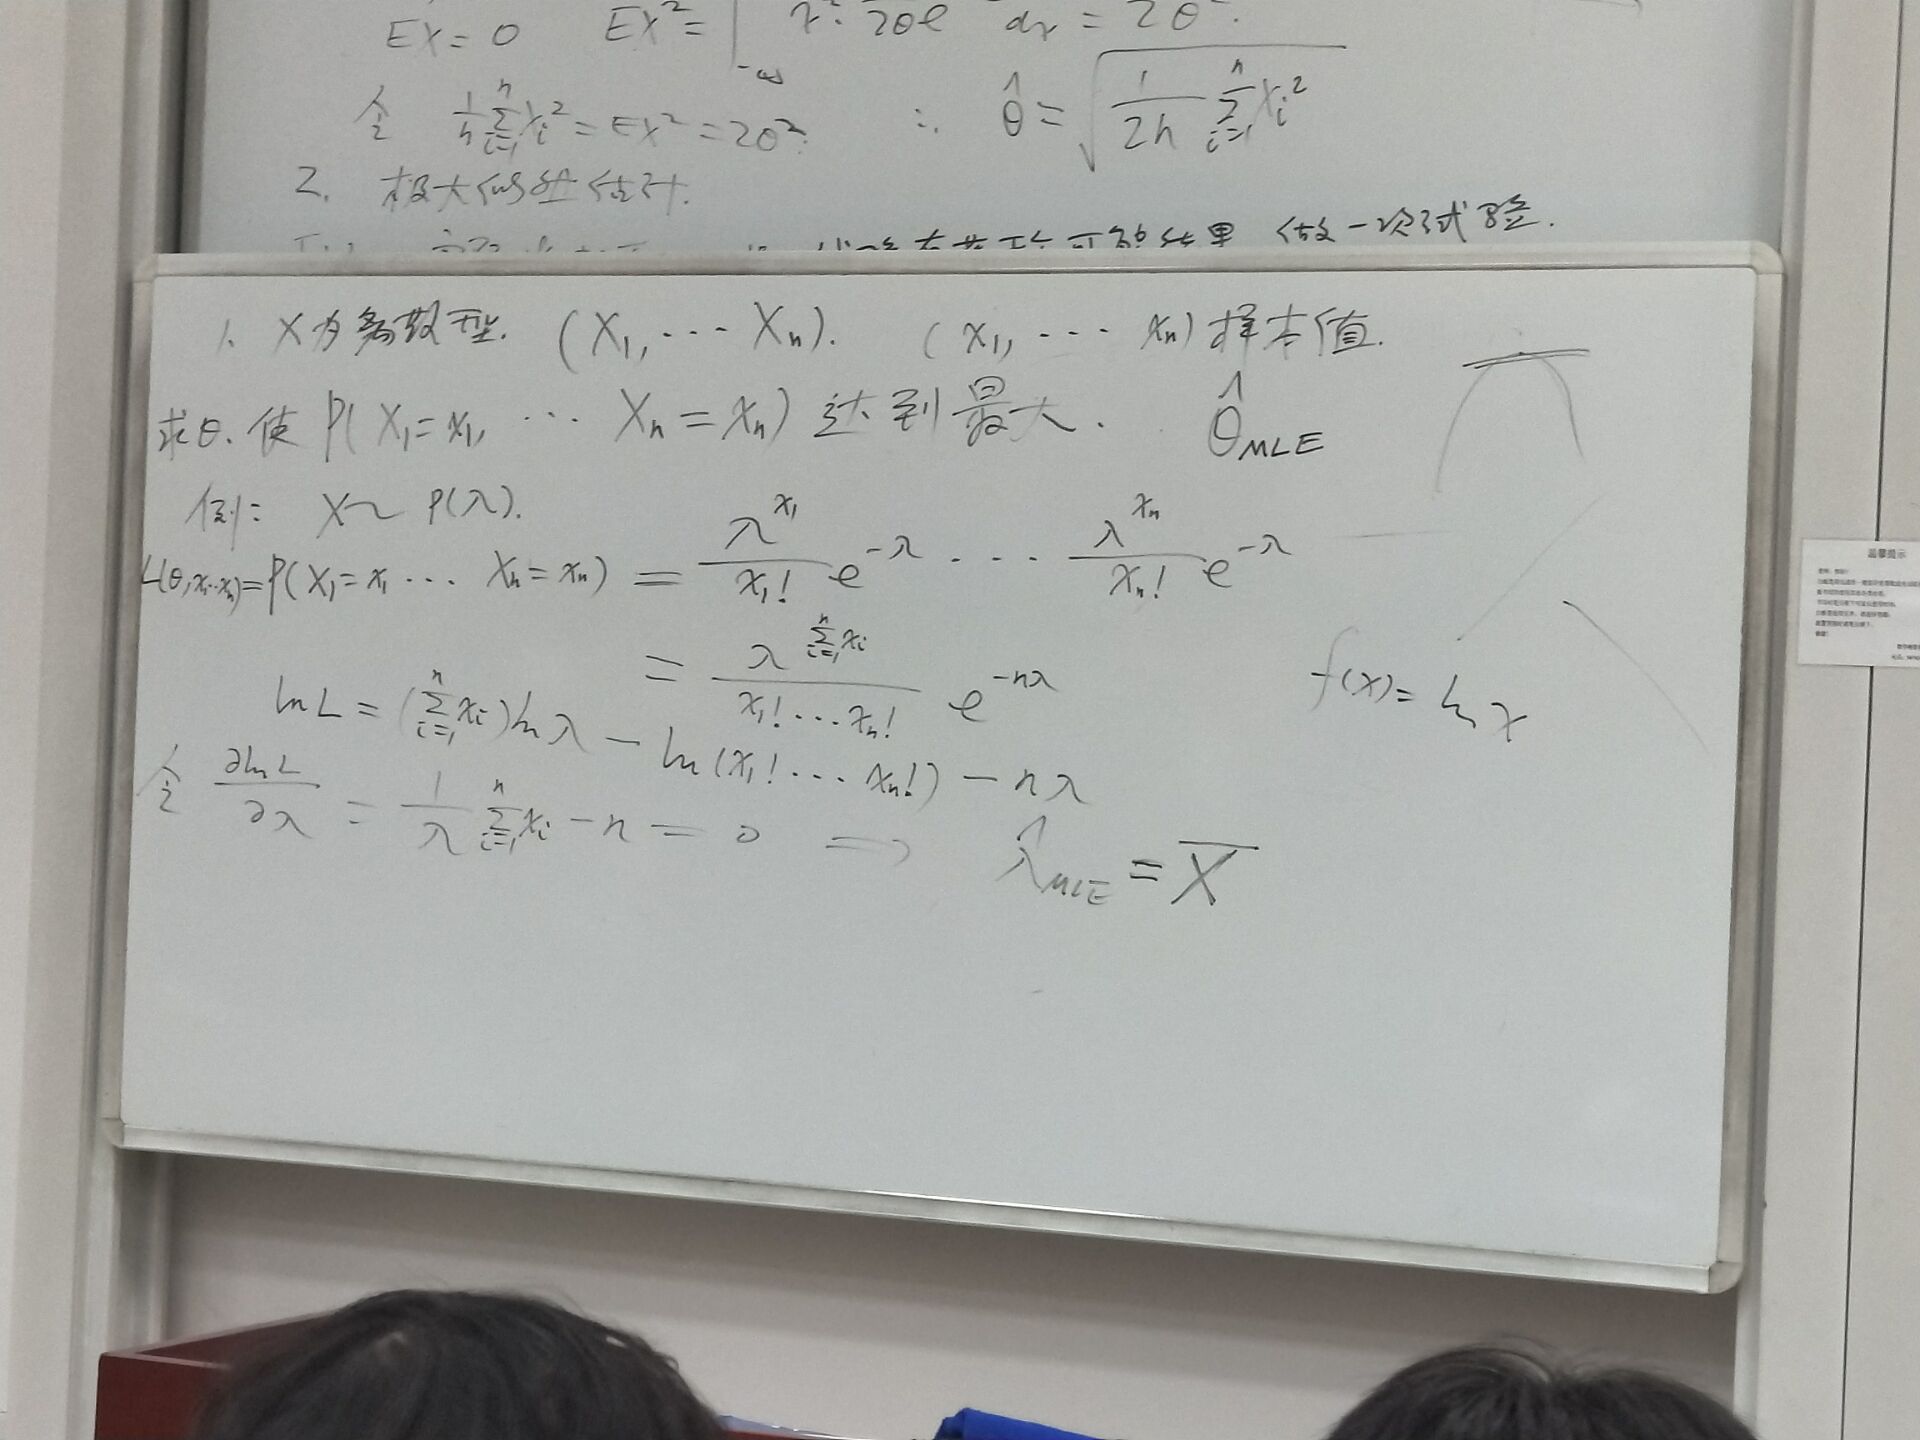 EX = 0 EX² = ∫_{-∞} x² · 1/2θ e dx = 2θ².
令 1/n ∑_{i=1}^{n} X_i² = EX² = 2θ². ∴ θ̂ = √(1/2n ∑_{i=1}^{n} X_i²)
2. 极大似然估计.
做一次试验.
1. X为离散型. (X₁, ··· Xₙ). (x₁, ··· xₙ) 样本值.
求θ. 使 P(X₁=x₁, ··· Xₙ=xₙ) 达到最大. θ̂_{MLE}
例: X ~ P(λ).
L(θ, x₁···xₙ) = P(X₁=x₁ ··· Xₙ=xₙ) = λ^{x₁}/x₁! e^{-λ} ··· λ^{xₙ}/xₙ! e^{-λ}
= λ^{∑_{i=1}^{n} x_i}/(x₁! ··· xₙ!) e^{-nλ}
f(x) = ln x
ln L = (∑_{i=1}^{n} x_i) ln λ − ln(x₁! ··· xₙ!) − nλ
令 ∂ln L/∂λ = 1/λ ∑_{i=1}^{n} x_i − n = 0 ⇒ λ̂_{MLE} = X̄
温馨提示